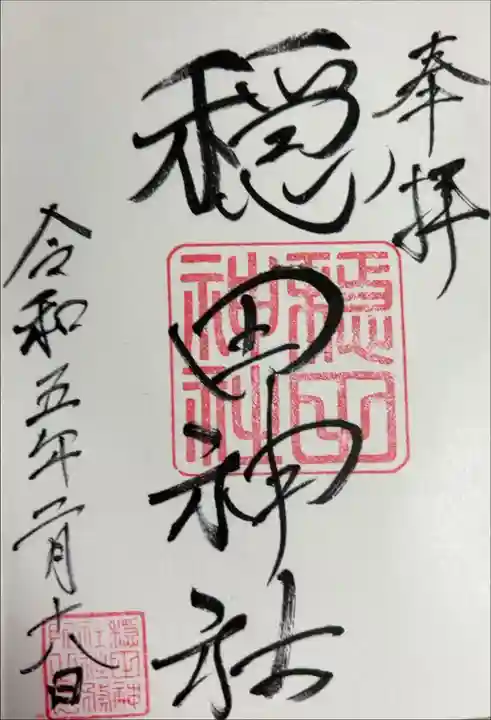 奉拝
穏田神社
穏田
神社
令和五年二月十八日
穏田神
社社務